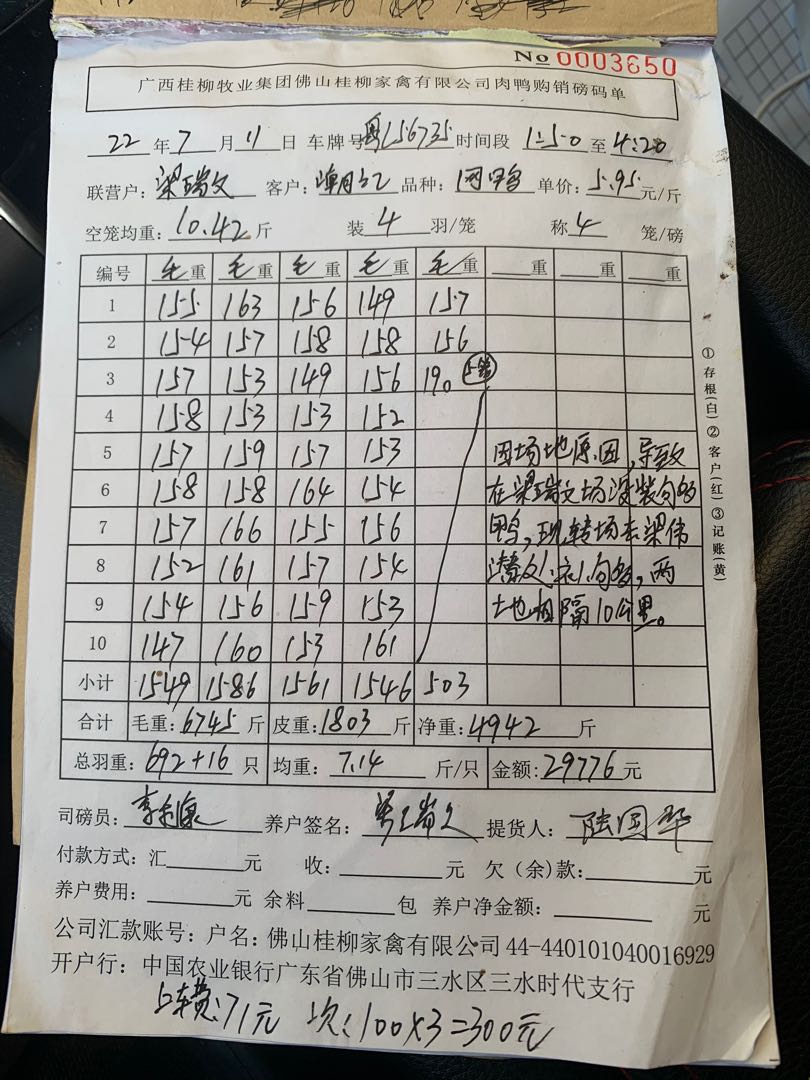 No 0003650
广西桂柳牧业集团佛山桂柳家禽有限公司肉鸭购销磅码单
22 年 7 月 11 日 车牌号 粤156735 时间段 1:50 至 4:20
联营户: 梁瑞文 客户: 品种: 单价: 5.95 元/斤
空笼均重: 10.42 斤 装 4 羽/笼 称 4 笼/磅
编号 毛重 毛重 毛重 毛重 毛重 重 重 重
1 155 163 156 149 157
2 154 157 158 158 156
3 157 153 149 156 190 5笼
4 158 153 153 152
5 157 159 157 153 因场地原因,导致
6 158 158 164 154 在梁瑞文场没装勾够
7 157 166 155 156 鸭,现转场去梁伟
8 152 161 157 154 够,两
9 154 156 159 153 地相隔10公里。
10 147 160 153 161
小计 1549 1586 1561 1546 503
合计 毛重: 6745 斤 皮重: 1803 斤 净重: 4942 斤
总羽重: 692+16 只 均重: 7.14 斤/只 金额: 29776 元
司磅员: 养户签名: 梁瑞文 提货人: 陆国华
付款方式: 汇 元 收: 元 欠(余)款: 元
养户费用: 元 余料 包 养户净金额: 元
公司汇款账号: 户名: 佛山桂柳家禽有限公司 44-440101040016929
开户行: 中国农业银行广东省佛山市三水区三水时代支行
上车费: 71元 次: 100×3=300元
①存根(白)②客户(红)③记账(黄)